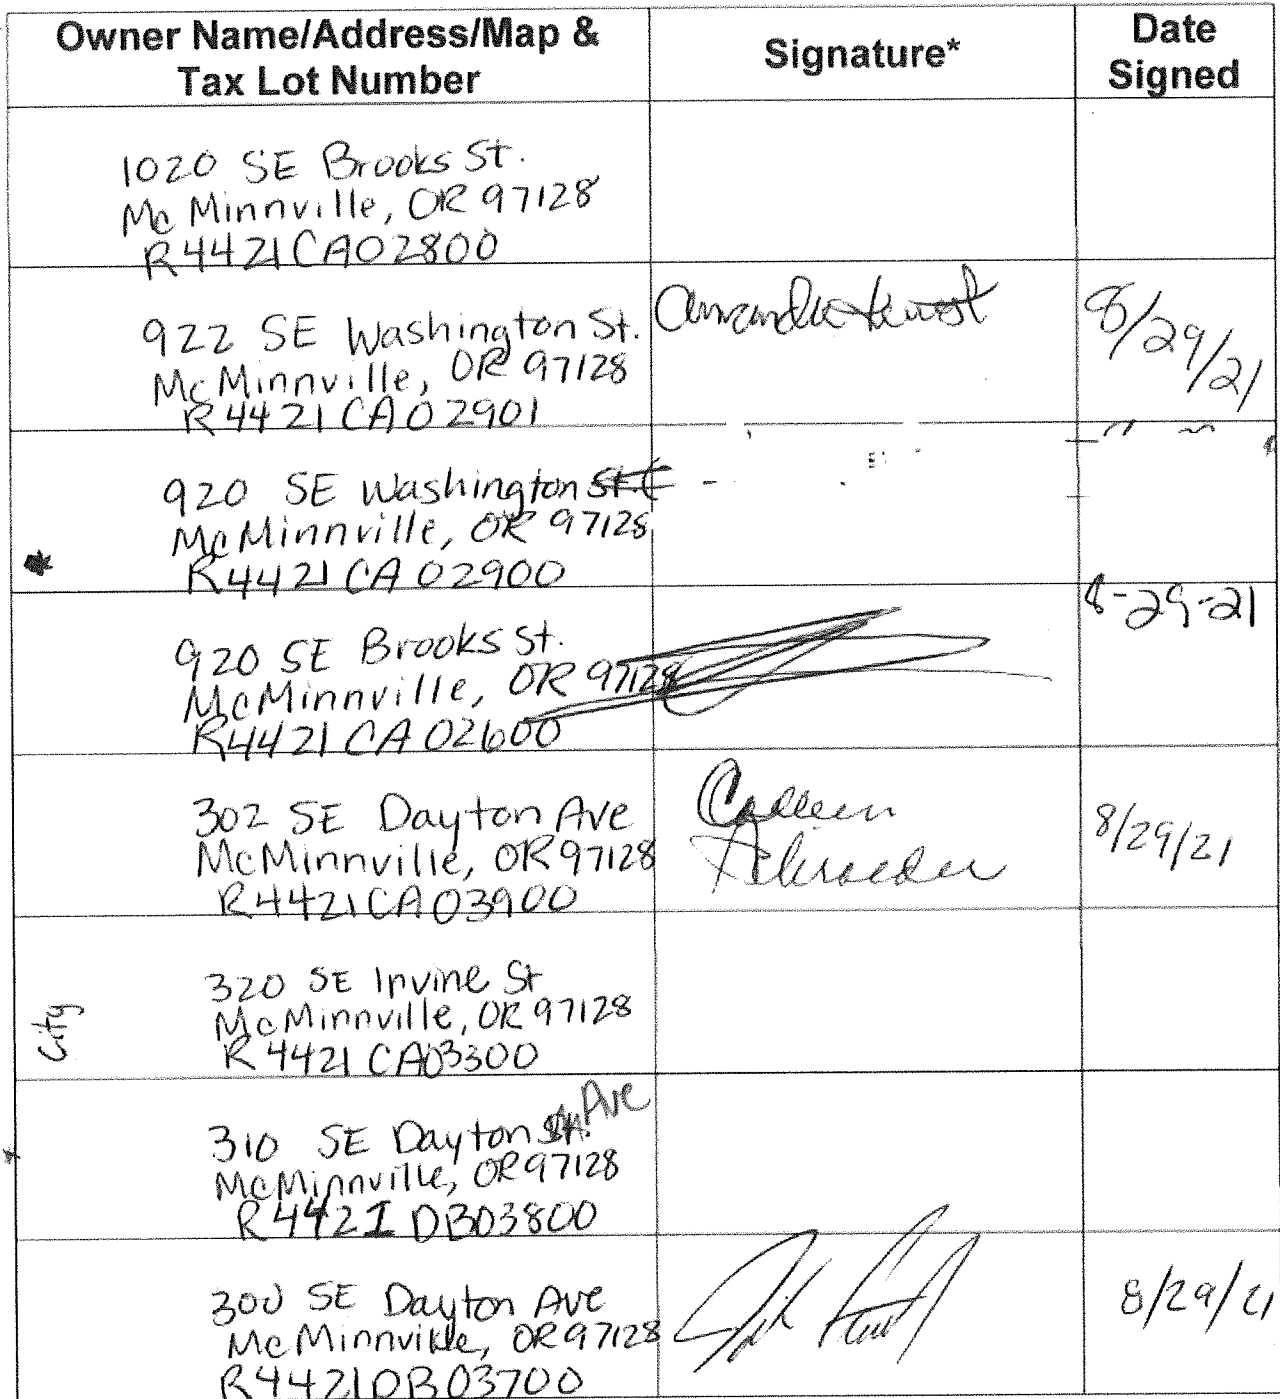 Owner Name/Address/Map &
Tax Lot Number
Signature*
Date
Signed
1020 SE Brooks St.
McMinnville, OR 97128
R4421CA02800
922 SE Washington St.
McMinnville, OR 97128
R4421CA02901
Amanda
8/29/21
920 SE Washington St.
McMinnville, OR 97128
R4421CA02900
920 SE Brooks St.
McMinnville, OR 97128
R4421CA02600
8-29-21
302 SE Dayton Ave
McMinnville, OR 97128
R4421CA03900
Colleen
Schroeder
8/29/21
City
320 SE Irvine St
McMinnville, OR 97128
R4421CA03300
310 SE Dayton Ave
McMinnville, OR 97128
R4421DB03800
300 SE Dayton Ave
McMinnville, OR 97128
R4421DB03700
8/29/21